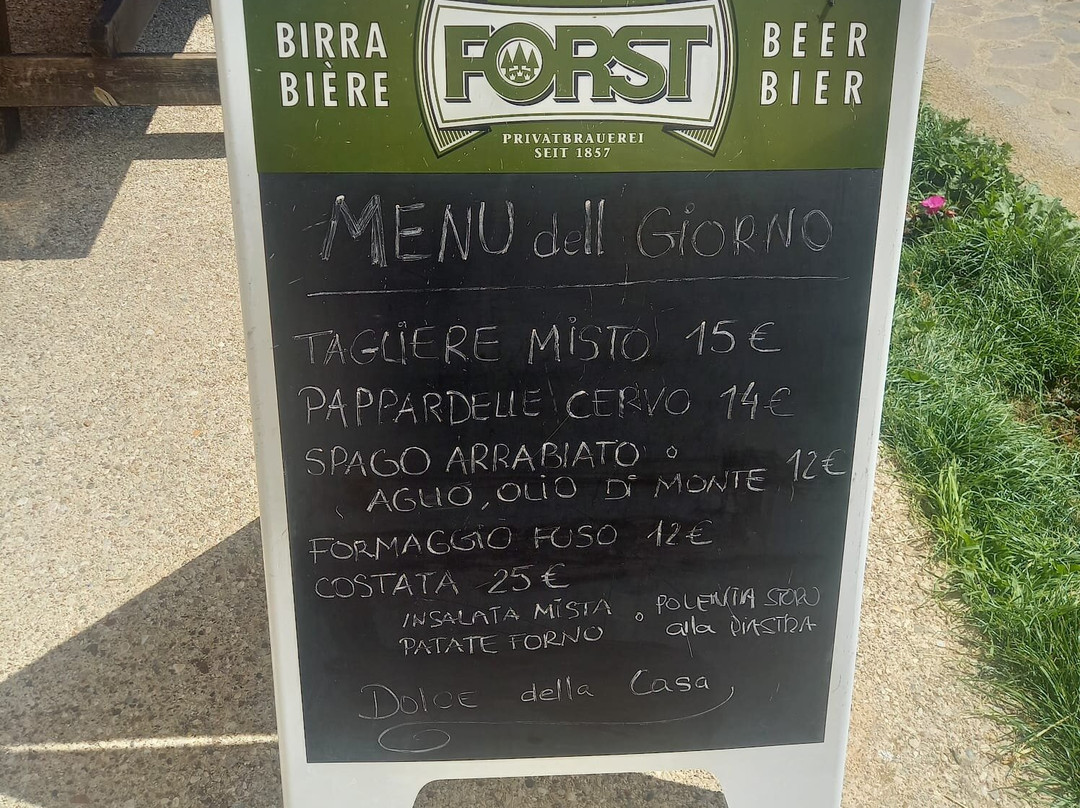 BIRRA
BIÈRE
FORST
BEER
BIER
PRIVATBRAUEREI
SEIT 1857
MENU dell GiORNO
TAGLIERE MISTO 15 €
PAPPARDELLE CERVO 14 €
SPAGO ARRABIATO o
AGLIO, OLIO Di MONTE 12 €
FORMAGGIO FUSO 12 €
COSTATA 25 €
INSALATA MISTA o POLENTA STORO
PATATE FORNO alla PIASTRA
DOLCE della Casa